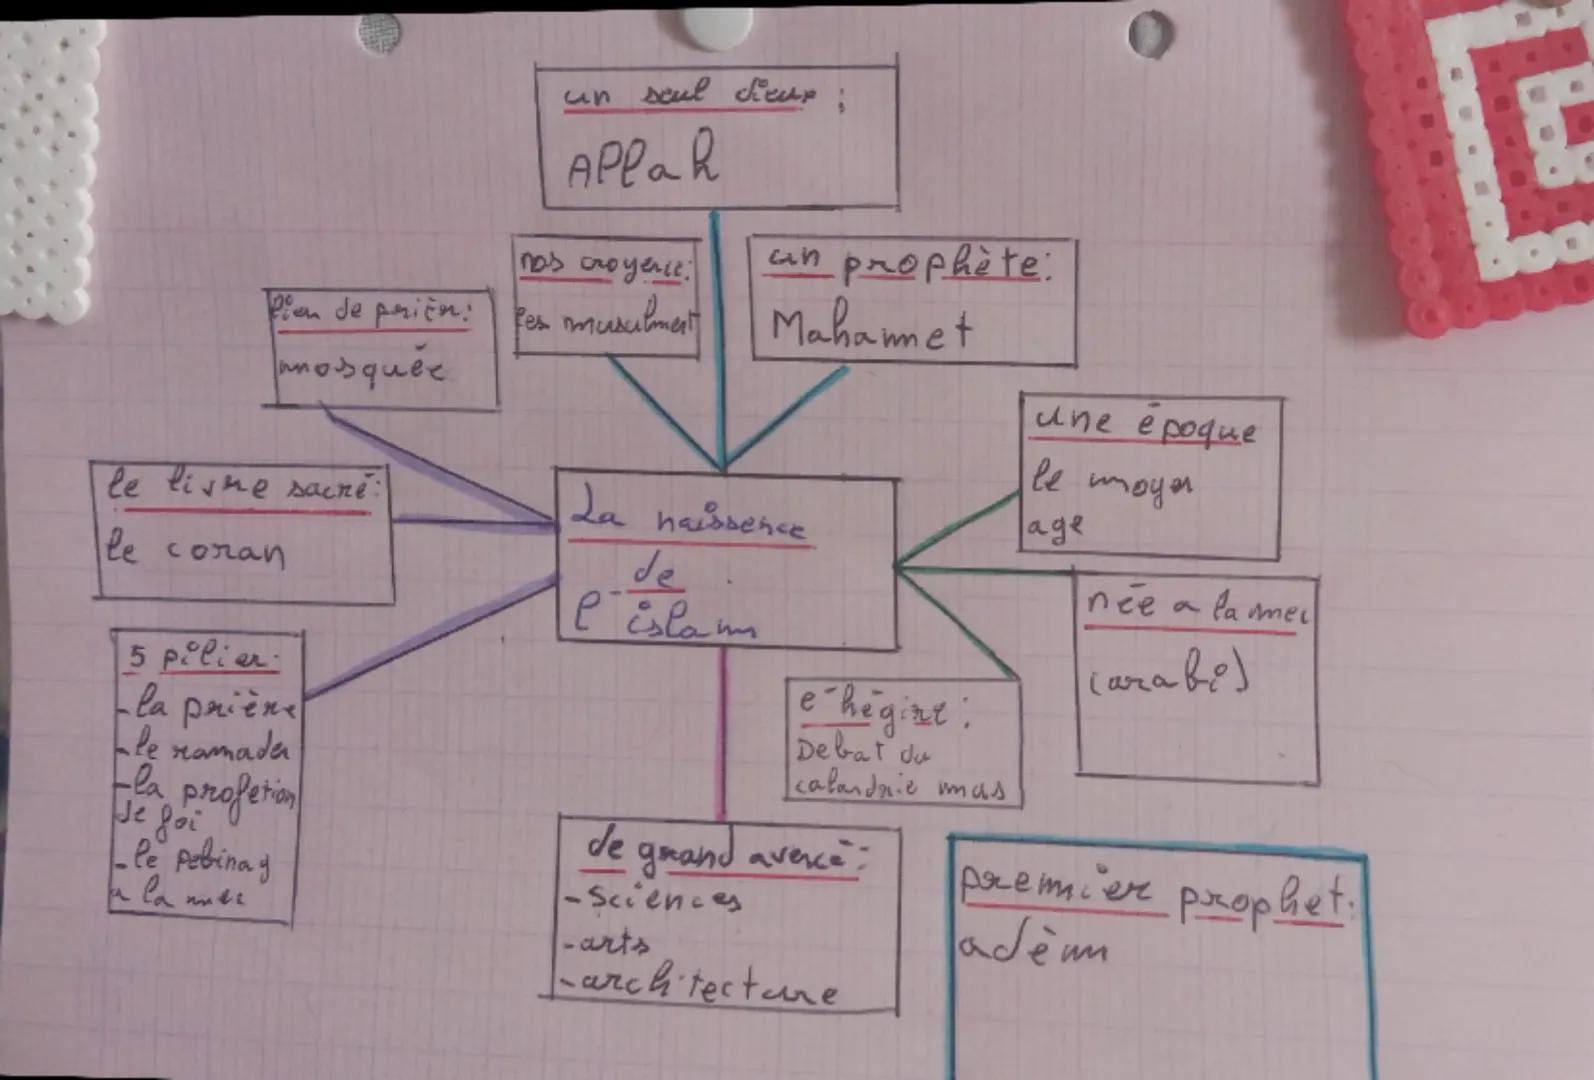 un seul dieux :
Allah
nos croyence:
les musulment
un prophète:
Mahammet
lieu de prièr:
mosquée
une époque
le moyen
age
le livre sacré:
le coran
La naissence
de
l'islam
née a la mec
(arabi)
5 pilier:
-la prière
-le ramadan
-la profetion
de foi
-le pelinag
a la mec
e-hégire:
Debat du
calandrie mus
de grand avencé:
-sciences
-arts
-architecture
premier prophet:
adèm